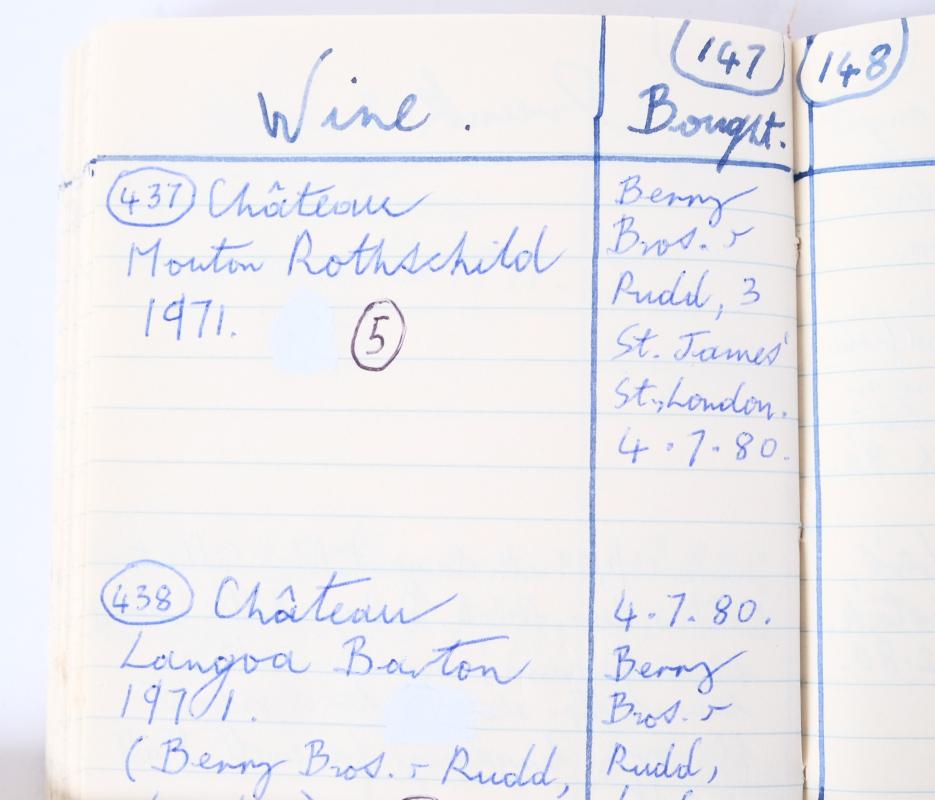 147
148
Wine.
Bought.
437 Château
Mouton Rothschild
1971.
5
Berry
Bros. &
Rudd, 3
St. James'
St., London.
4.7.80.
438 Château
Langoa Barton
1971.
(Berry Bros. & Rudd,
4.7.80.
Berry
Bros. &
Rudd,